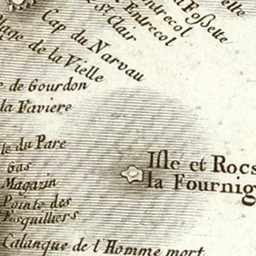 Fossette
Entrecol
Entrecol
St Clair
Cap du Narvau
Plage de la Vielle
de Gourdon
la Faviere
du Parc
Gas
Magazin
Pointe des
Fosquilliers
Isle et Rocs
la Fournig
Calanque de l'Homme mort